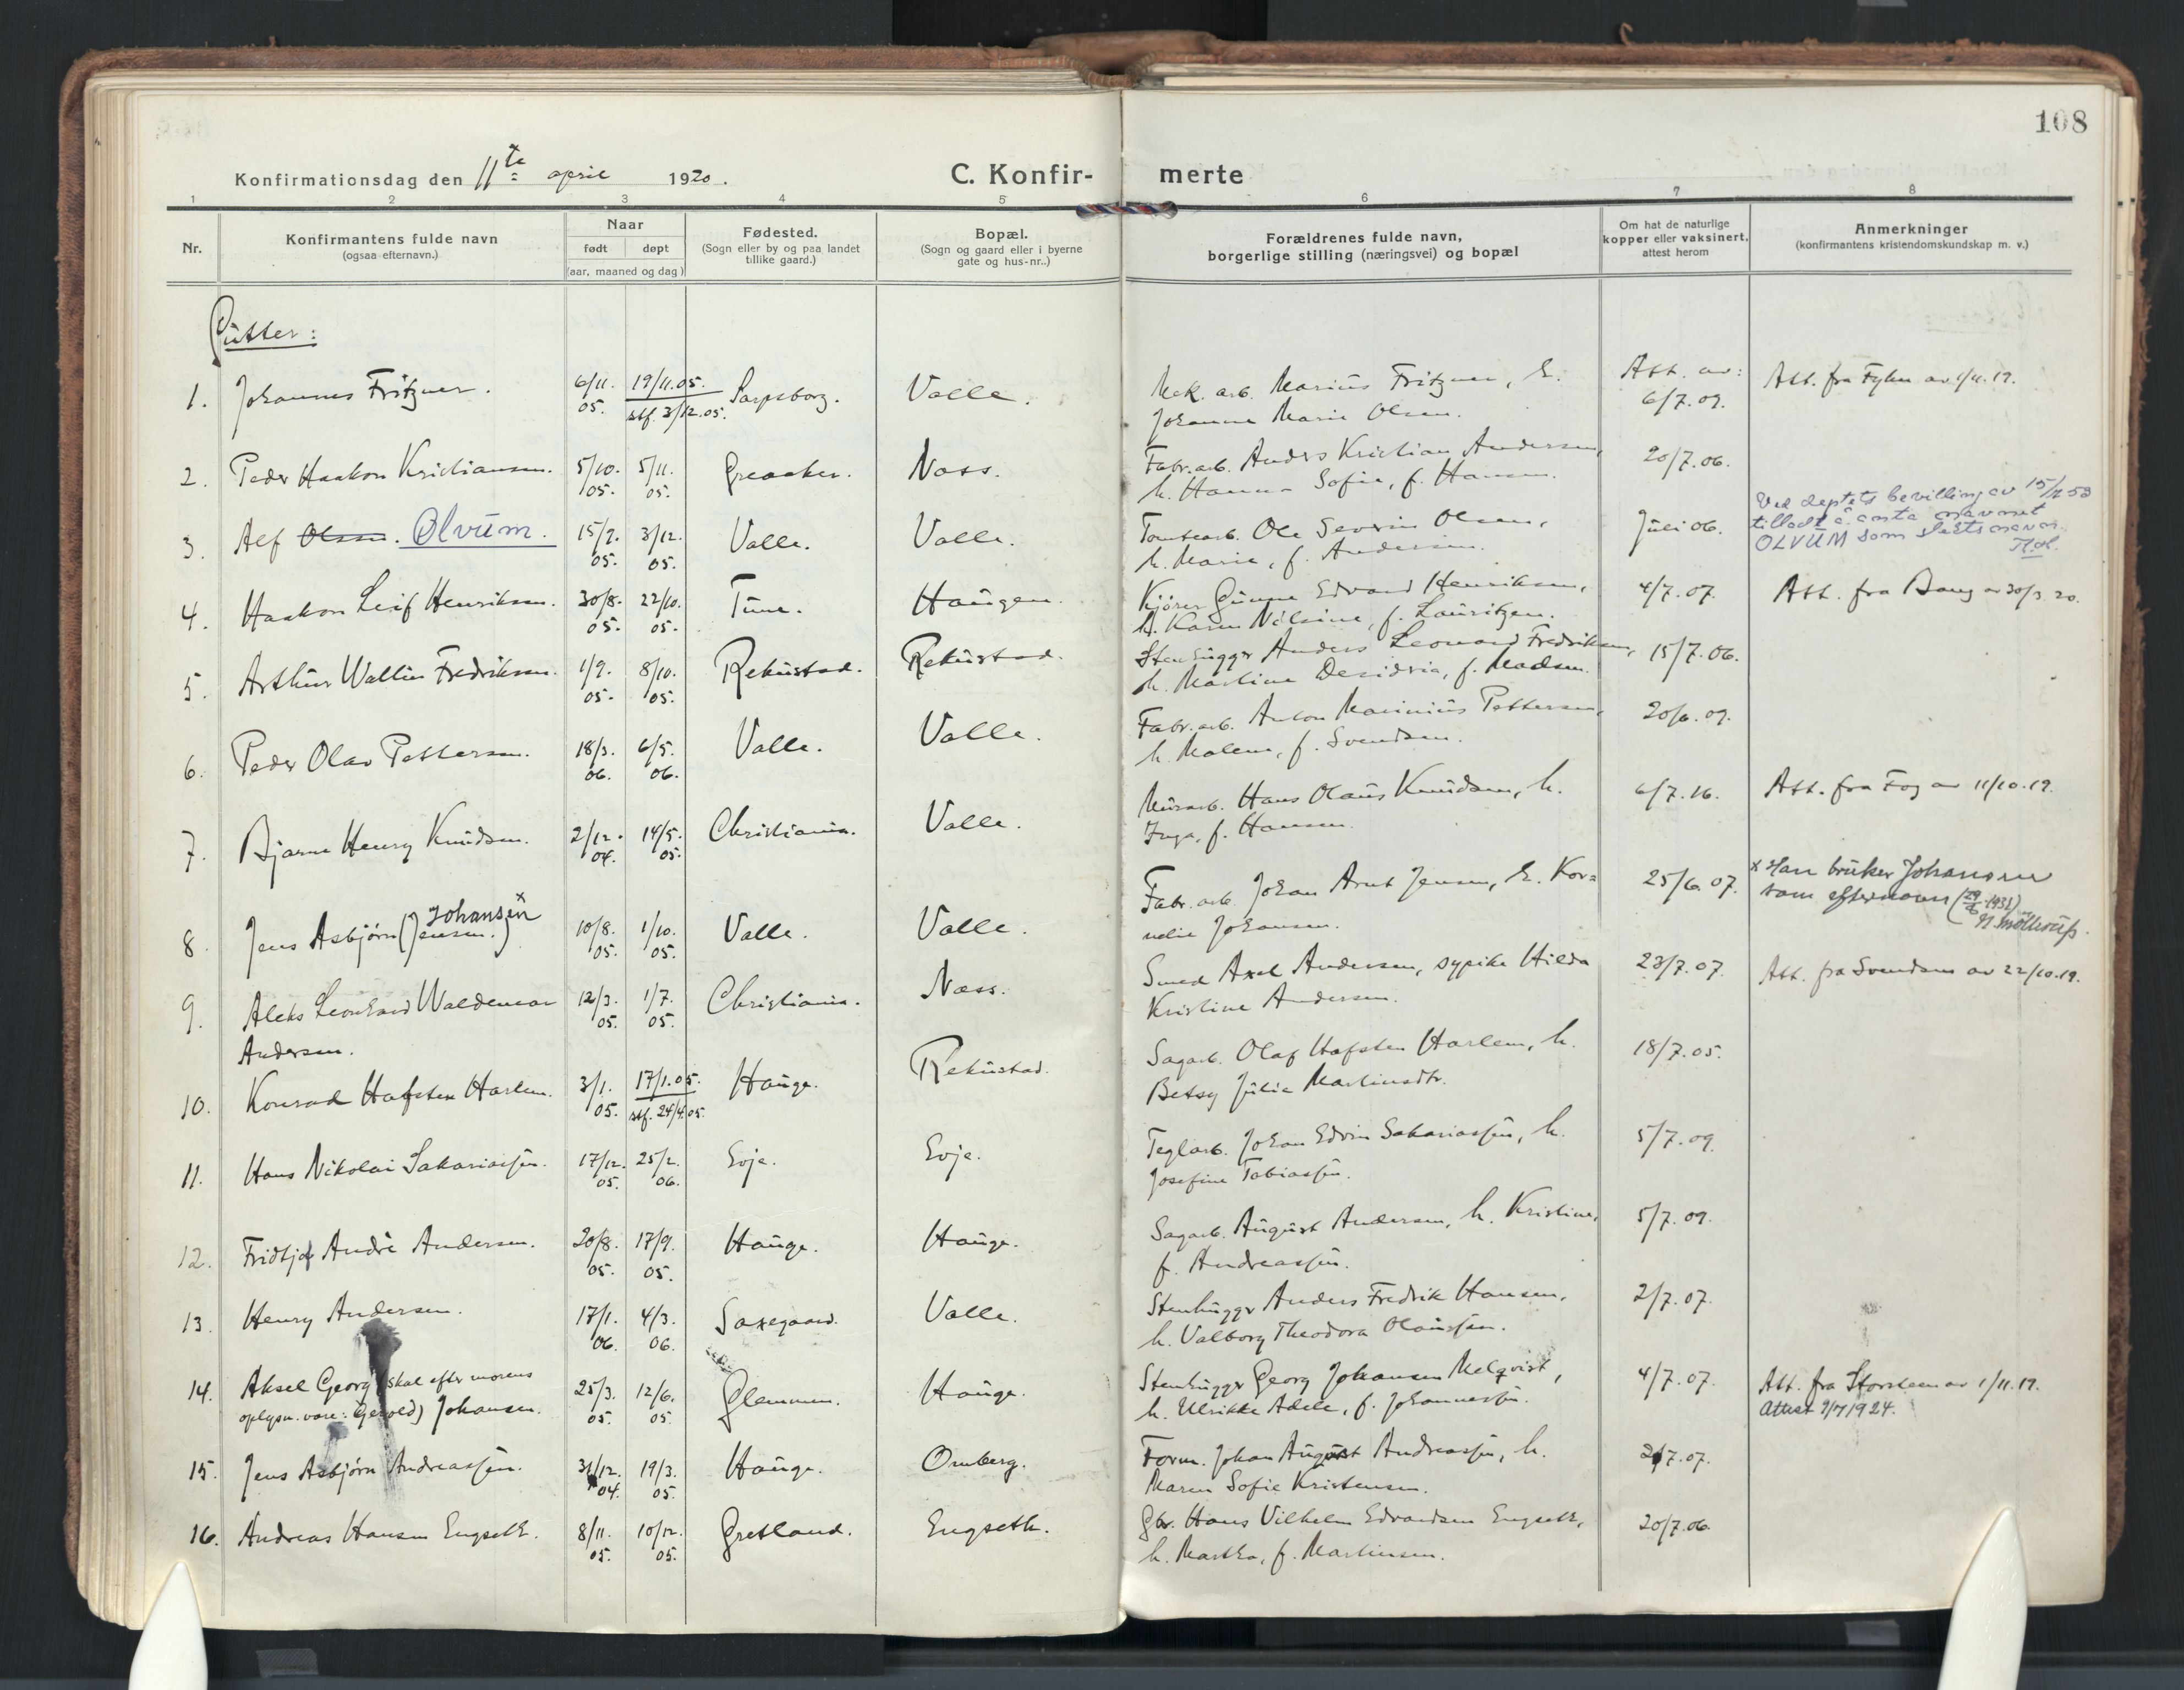 108
Konfirmationsdag den 11te april 1920.
C. Konfir-merte
1 2 3 4 5 6 7 8
Nr.
Konfirmantens fulde navn
(ogsaa efternavn.)
Naar
født døpt
(aar, maaned og dag)
Fødested.
(Sogn eller by og paa landet
tillike gaard.)
Bopæl.
(Sogn og gaard eller i byerne
gate og hus-nr..)
Forældrenes fulde navn,
borgerlige stilling (næringsvei) og bopæl
Om hat de naturlige
kopper eller vaksinert,
attest herom
Anmerkninger
(konfirmantens kristendomskundskap m. v.)
Gutter:
1. Johannes Fritzner. 6/11. 19/11.05. Sarpsborg. Valle. Mek. arb. Marius Fritzner, h. Att. av: Att. fra 1/11.19.
05. stf. 3/12.05. Johanne Marie Olsen. 6/7.09.
2. Peder Haakon Kristiansen. 5/10. 5/11. Greaaker. Næss. Fabr.arb. Anders Kristian Andersen, 20/7.06.
05. 05. h. Hanna Sofie, f. Hansen.
3. Alf Olsen. Olvum. 15/9. 3/12. Valle. Valle. Tomtearb. Ole Severin Olsen, Juli 06. Ved deptets bevilling av 15/12 53
05. 05. h. Marie, f. Andersen. tilladt å anta navnet
OLVUM som slektsnavn.
4. Haakon Leif Henriksen. 30/8. 22/10. Tune. Haugen. Kjører Gunne Edvard Henriksen, 4/7.07. Att. fra Bang av 30/3 20.
05. 05. h. Karen Nilsine, f. Lauritzen.
5. Arthur Wallin Fredriksen. 1/9. 8/10. Rekustad. Rekustad. Stenhugger Anders Leonard Fredriksen, 15/7.06.
05. 05. h. Martine Desideria, f. Madsen.
6. Peder Olav Pettersen. 18/3. 6/5. Valle. Valle. Fabr.arb. Anton Marinius Pettersen, 20/6.09.
06. 06. h. Malene, f. Svendsen.
7. Bjarne Henry Knudsen. 2/12. 14/5. Christiania. Valle. Murarb. Hans Olaus Knudsen, h. 6/7.16. Att. fra Fog av 11/10.19.
04. 05. Inga, f. Hansen.
8. Jens Asbjørn (Jensen.) Johansen x 10/8. 1/10. Valle. Valle. Fabr. arb. Johan Arnt Jensen, h. Kor= 25/6.07. x Han bruker Johansen
05. 05. nelie Johansen. som efternavn (29/6 1932)
N. Møllerup.
9. Aleks Leonhard Waldemar 12/3. 1/7. Christiania. Næss. Smed Axel Andersen, sypike Hilda 23/7.07. Att. fra Svendsen av 22/10.19.
Andersen. 05. 05. Kristine Andersen.
10. Konrad Hafsten Harlem. 3/1. 17/1.05. Hauge. Rekustad. Sagarb. Olaf Hafsten Harlem, h. 18/7.05.
05. stf. 24/4.05. Betsy Julie Martinsdtr.
11. Hans Nikolai Sakariassen. 17/12. 25/2. Evje. Evje. Teglarb. Johan Edvin Sakariassen, h. 5/7.09.
05. 06. Josefine Tobiassen.
12. Fridtjof André Andersen. 20/8. 17/9. Hauge. Hauge. Sagarb. August Andersen, h. Kristine, 5/7.09.
05. 05. f. Andreassen.
13. Henry Andersen. 17/1. 4/3. Saxegaard. Valle. Stenhugger Anders Fredrik Hansen, 2/7.07.
06. 06. h. Valborg Theodora Olaussen.
14. Aksel Georg (skal efter morens 25/3. 12/6. Glemmen. Hauge. Stenhugger Georg Johansen Melqvist, 4/7.07. Att. fra Storsteen av 1/11.19.
oplysn. være: Gerold) Johansen. 05. 05. h. Ulrikke Adele, f. Johannessen. Attest 9/7 1924.
15. Jens Asbjørn Andreassen. 31/12. 19/3. Hauge. Omberg. Form. Johan August Andreassen, h. 2/7.07.
04. 05. Maren Sofie Kristensen.
16. Andreas Hansen Engseth. 8/11. 10/12. Gretland. Engseth. Gbr. Hans Vilhelm Edvardsen Engseth, 20/7.06.
05. 05. h. Martha, f. Martinsen.